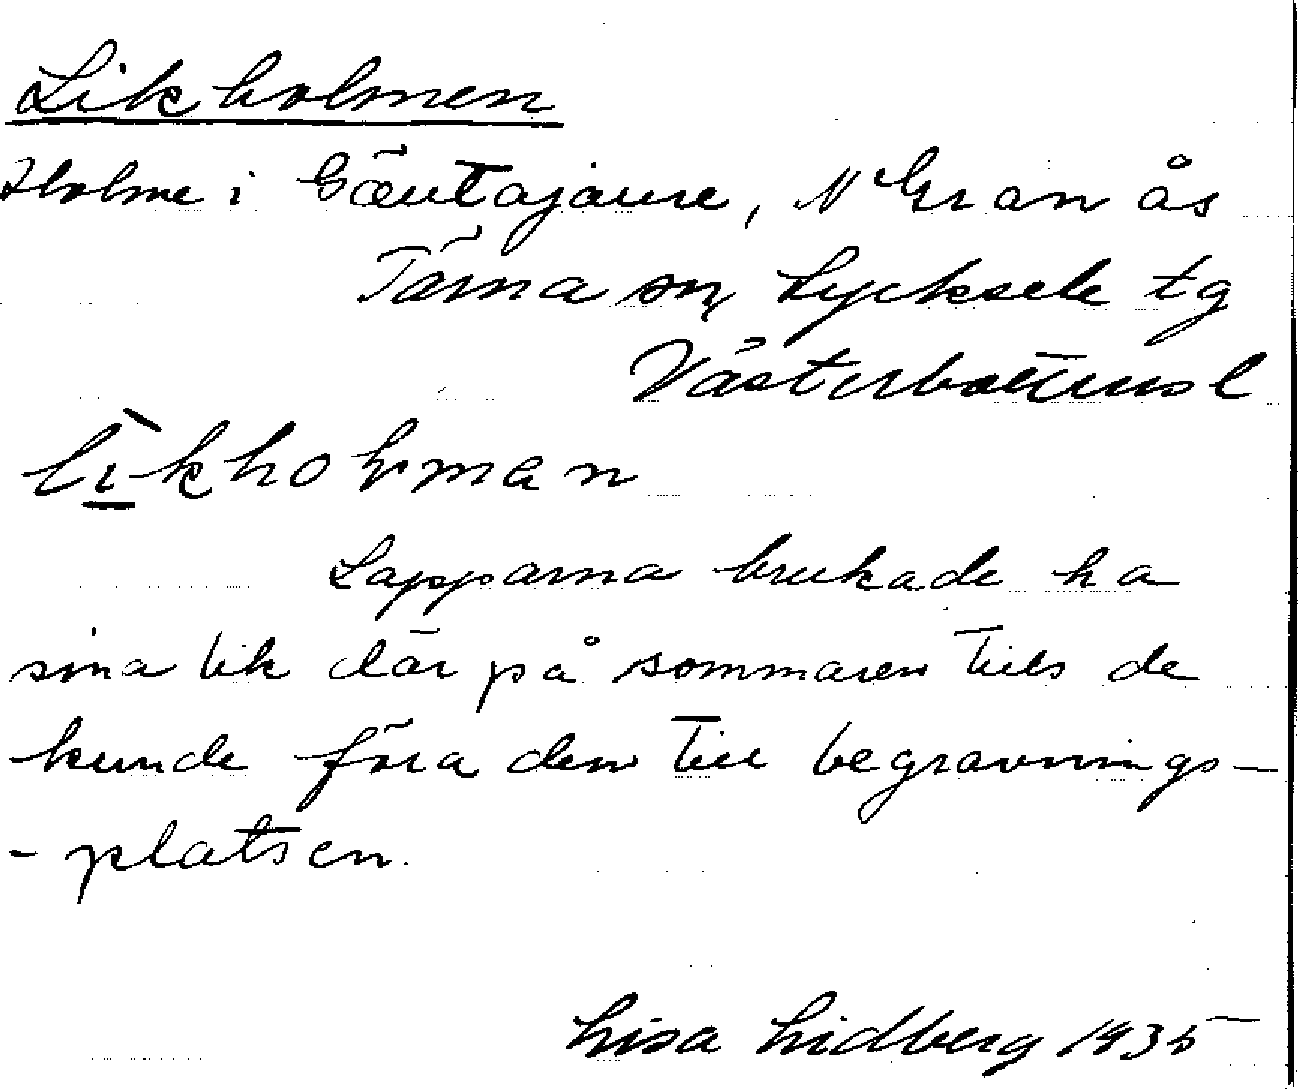 Likholmen
Holme i Gäutajaure, N Granås
Tärna sn, Lycksele tg
Västerbottens l
likholman
Lapparna brukade ha
sina lik där på sommaren tills de
kunde föra dem till begravnings-
-platsen.
Lisa Lidberg 1935